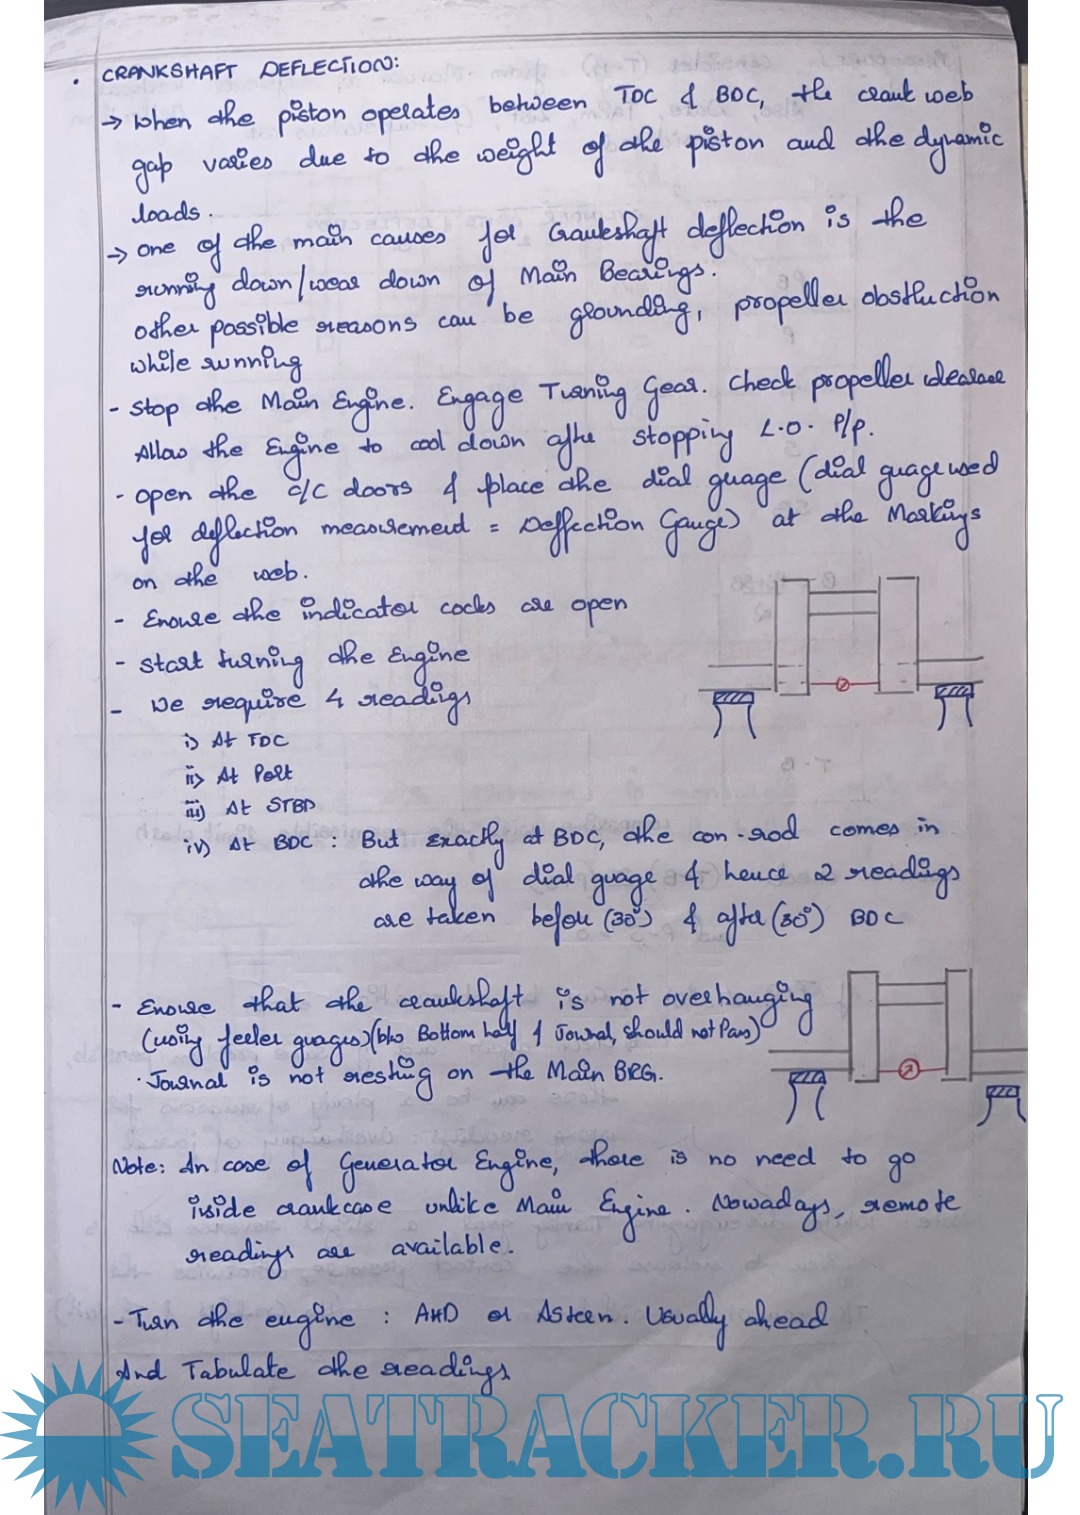 • CRANKSHAFT DEFLECTION:
→ When the piston operates between TDC & BDC, the crank web
gap varies due to the weight of the piston and the dynamic
loads.
→ One of the main causes for Crankshaft deflection is the
running down/wear down of Main Bearings.
other possible reasons can be grounding, propeller obstruction
while running
- Stop the Main Engine. Engage Turning Gear. Check propeller clearance
Allow the Engine to cool down after stopping L.O. P/p.
- open the c/c doors & place the dial guage (dial guage used
for deflection measurement = Deflection Gauge) at the Markings
on the web.
- Ensure the indicator cocks are open
- Start turning the Engine
- We require 4 readings
i) At TDC
ii) At Port
iii) At STBD
iv) At BDC : But Exactly at BDC, the con-rod comes in
the way of dial guage & hence 2 readings
are taken before (30°) & after (30°) BDC
- Ensure that the crankshaft is not overhanging
(using feeler guages) (b/w Bottom half & Journal, should not Pass)
. Journal is not resting on the Main BRG.
Note: In case of Generator Engine, there is no need to go
inside crankcase unlike Main Engine. Nowadays, remote
readings are available.
- Turn the engine : AHD or Astern. Usually ahead
And Tabulate the readings
SEATRACKER.RU